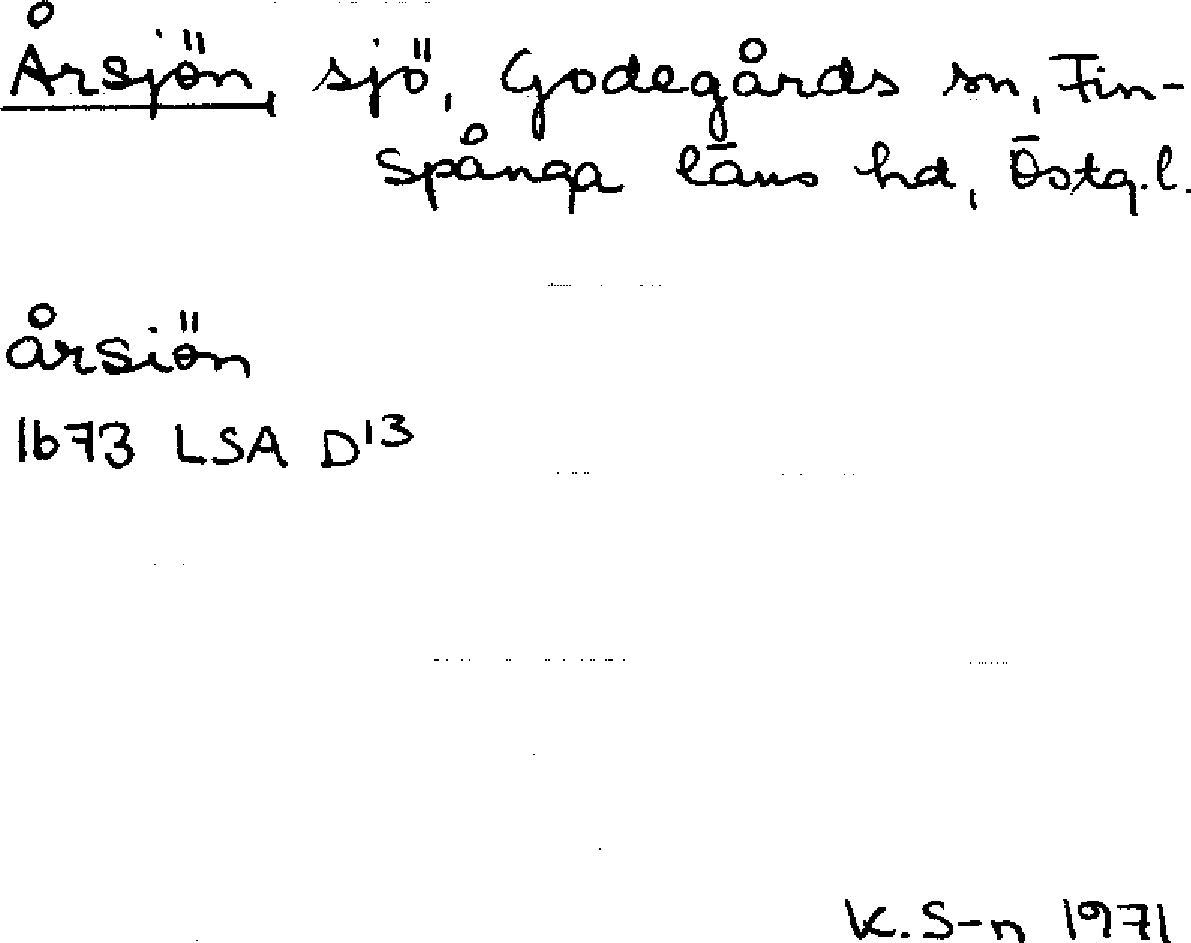 Årsjön, sjö, Godegårds sn, Fin-
spånga läns hd, Östg.l.
årsiön
1673 LSA D13
K. S-n 1971